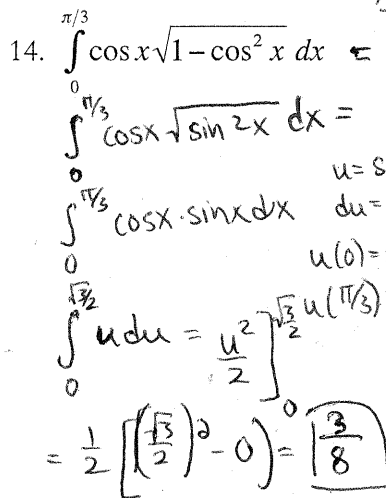 14. ∫₀^{π/3} cos x √(1 − cos² x) dx =
∫₀^{π/3} cosx √(sin 2x) dx =
u = S
∫₀^{π/3} cosx · sinx dx
du =
u(0) =
∫₀^{√3/2} u du = u²/2 ]₀^{√3/2}
u(π/3)
= 1/2 [(√3/2)² − 0) = 3/8